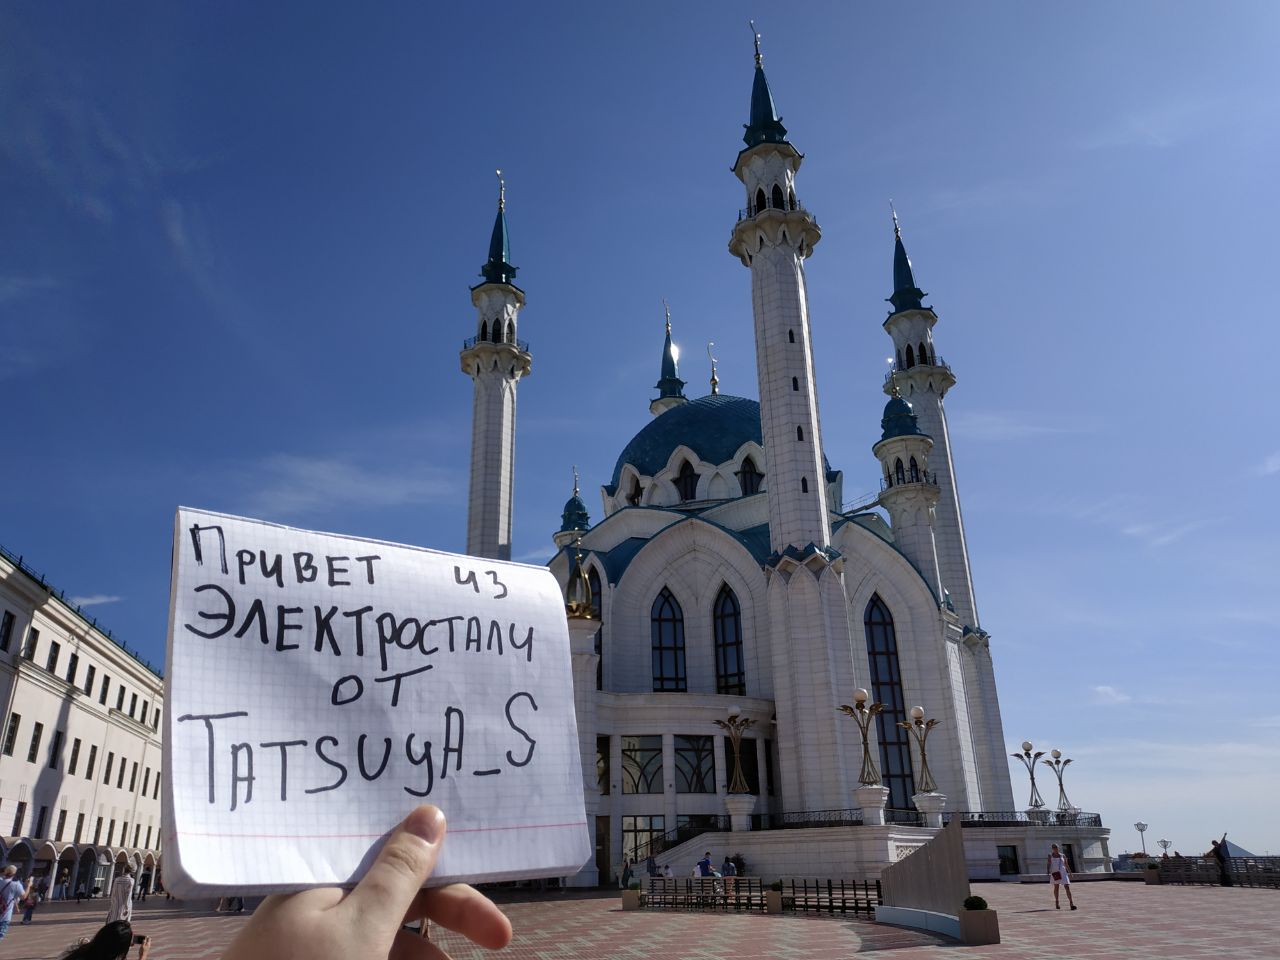 Привет из
Электростали
от
Tatsuya_S